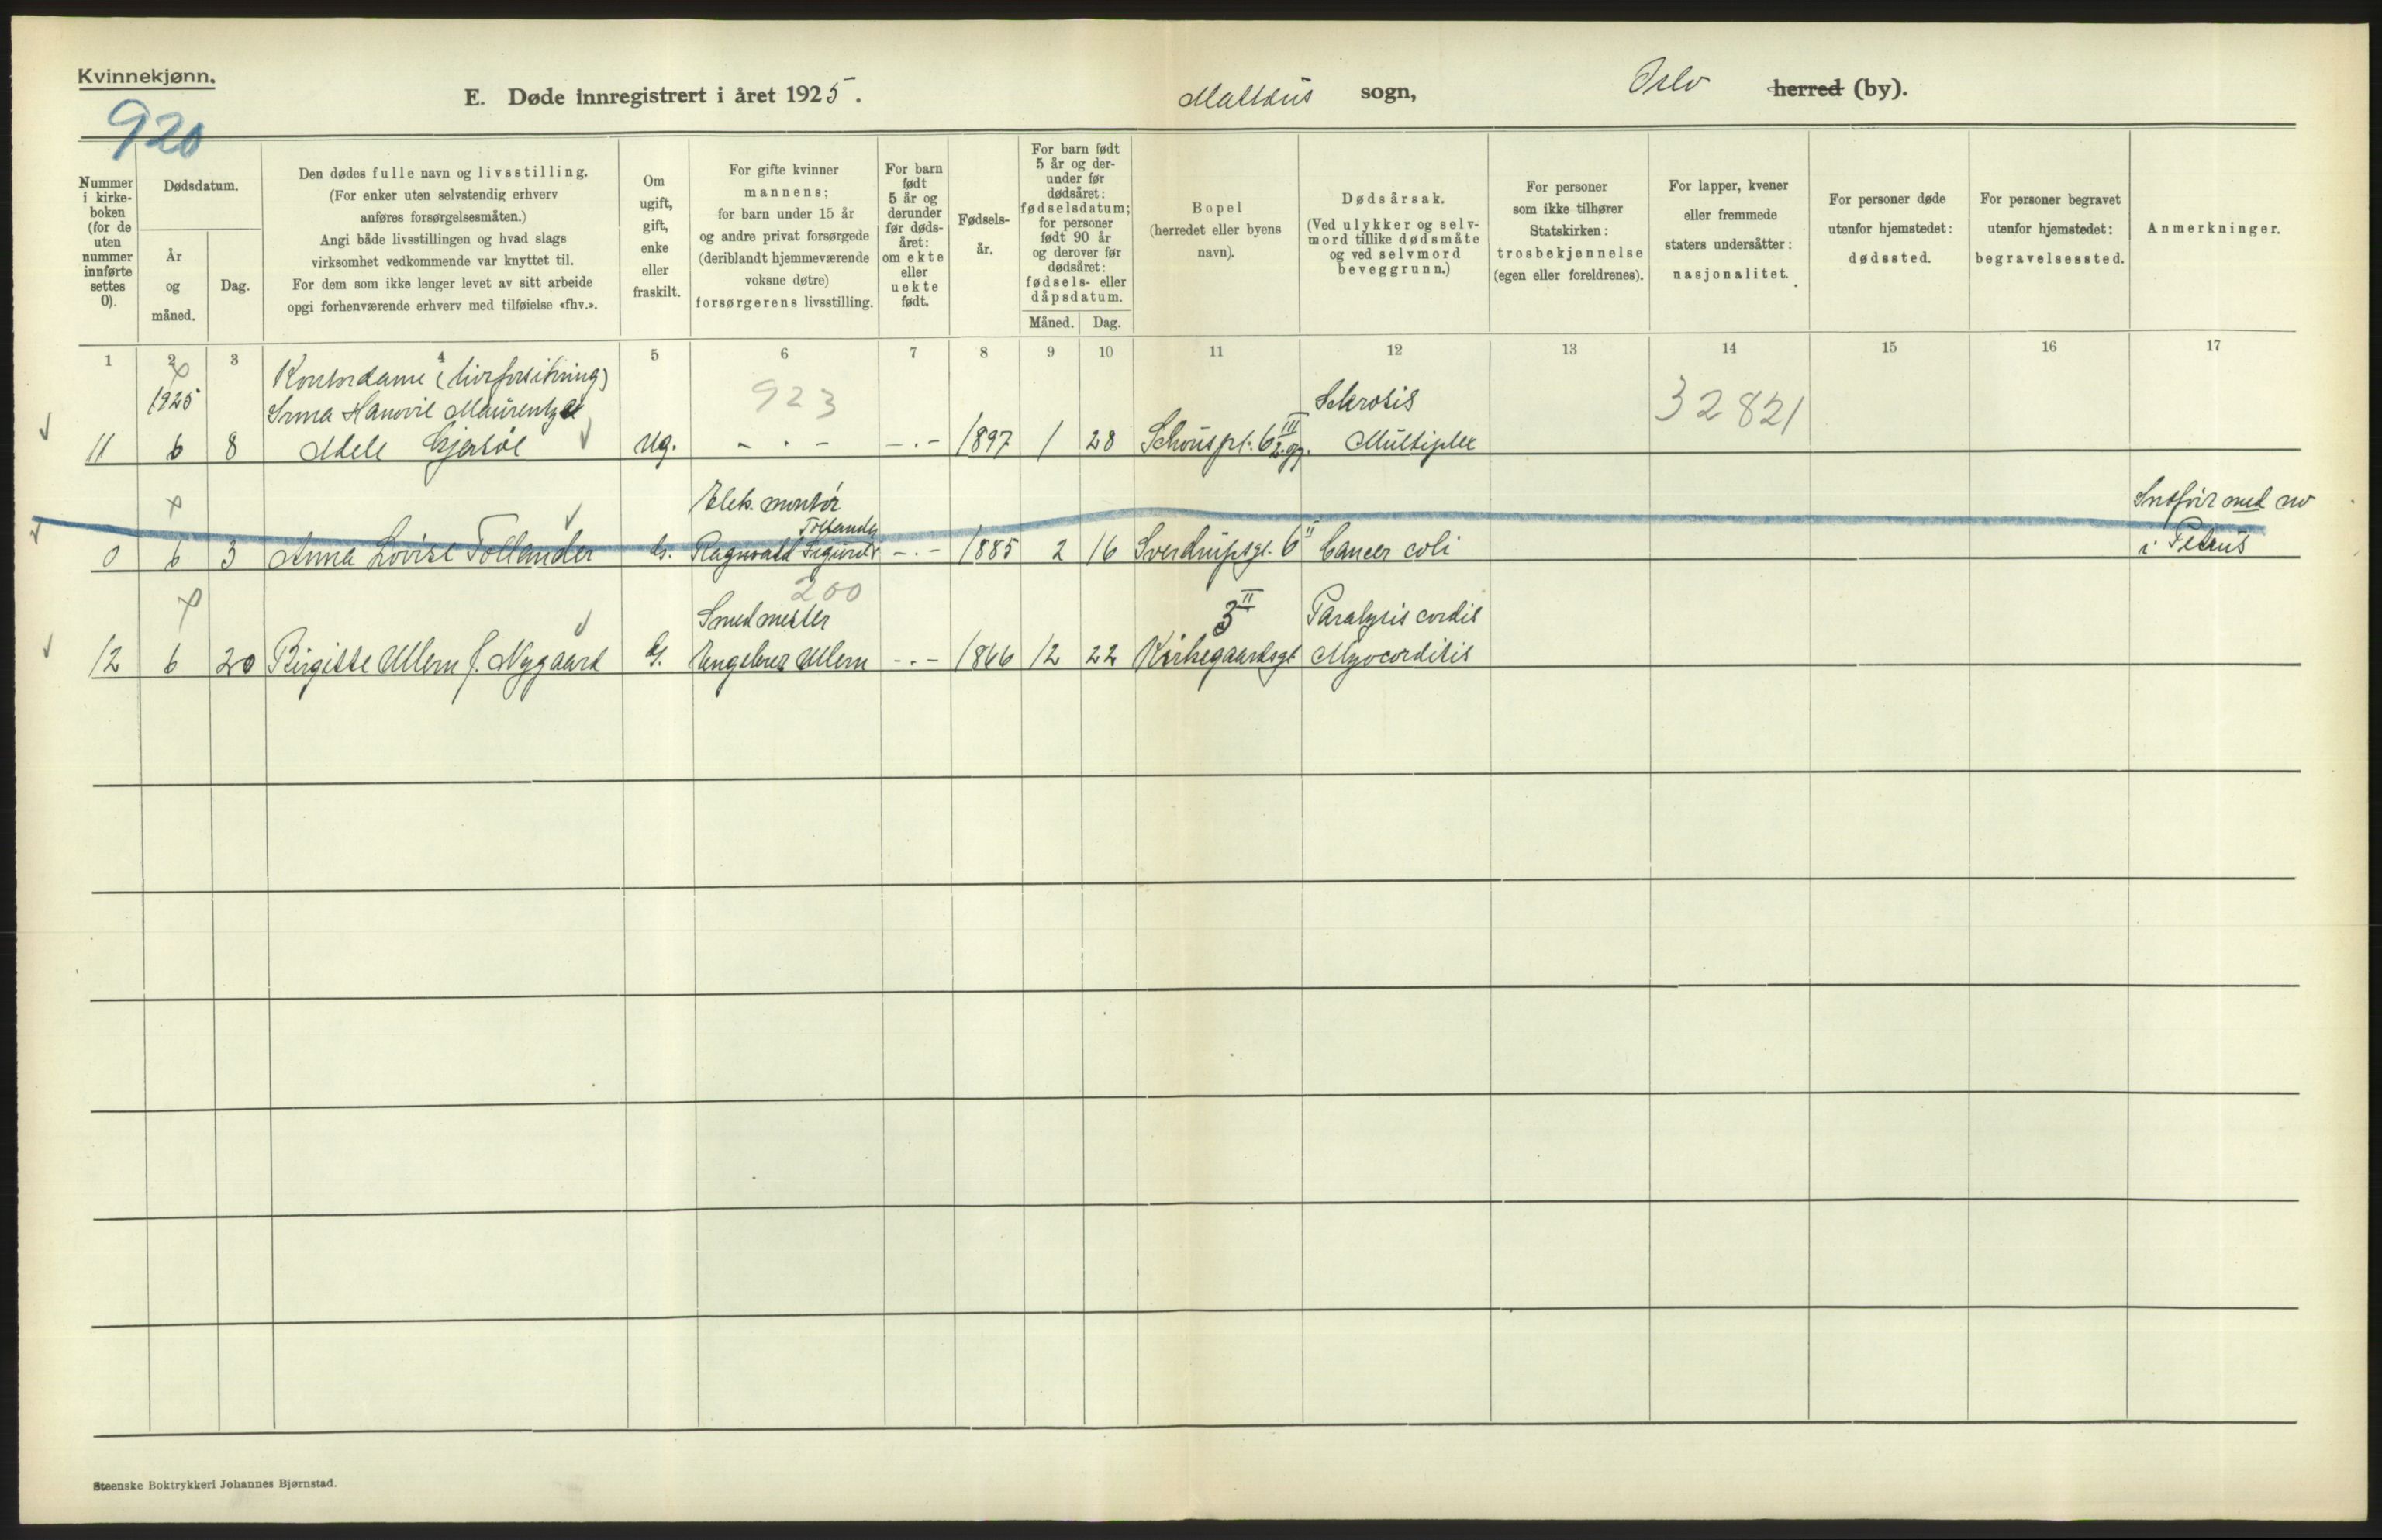 Kvinnekjønn.
920
E. Døde innregistrert i året 1925.
Mattæus sogn,
Oslo herred (by).
Nummer
i kirke-
boken
(for de
uten
nummer
innførte
settes
0).
Dødsdatum.
År
og
måned.
Dag.
Den dødes fulle navn og livsstilling.
(For enker uten selvstendig erhverv
anføres forsørgelsesmåten.)
Angi både livsstillingen og hvad slags
virksomhet vedkommende var knyttet til.
For dem som ikke lenger levet av sitt arbeide
opgi forhenværende erhverv med tilføielse «fhv.».
Om
ugift,
gift,
enke
eller
fraskilt.
For gifte kvinner
mannens;
for barn under 15 år
og andre privat forsørgede
(deriblandt hjemmeværende
voksne døtre)
forsørgerens livsstilling.
For barn
født
5 år og
derunder
før døds-
året:
om ekte
eller
uekte
født.
Fødsels-
år.
For barn født
5 år og der-
under før
dødsåret:
fødselsdatum;
for personer
født 90 år
og derover før
dødsåret:
fødsels- eller
dåpsdatum.
Måned.
Dag.
Bopel
(herredet eller byens
navn).
Dødsårsak.
(Ved ulykker og selv-
mord tillike dødsmåte
og ved selvmord
beveggrunn.)
For personer
som ikke tilhører
Statskirken:
trosbekjennelse
(egen eller foreldrenes).
For lapper, kvener
eller fremmede
staters undersåtter:
nasjonalitet.
For personer døde
utenfor hjemstedet:
dødssted.
For personer begravet
utenfor hjemstedet:
begravelsessted.
Anmerkninger.
1 2 3 4 5 6 7 8 9 10 11 12 13 14 15 16 17
Kontordame (livsforsikring)
1925 Irma 923 Sclerosis 32821
11 6 8 Adele Ug. - . - - . - 1897 1 28 Schouspl. 6 III 2. opg. Multiplex
Elek. montør Innført med no
Tollander
0 6 3 Anna Lovise Tollander G. Ragnvald Sigurd - . - 1885 2 16 Sverdrupsgt. 6 II Cancer coli i Petrus
200
Smedmester 3 II Paralysis cordis
12 6 20 Birgitte Ullern f. Nygaard G. Engebret Ullern - . - 1866 12 22 Kirkegaardsgt Myocarditis
Steenske Boktrykkeri Johannes Bjørnstad.